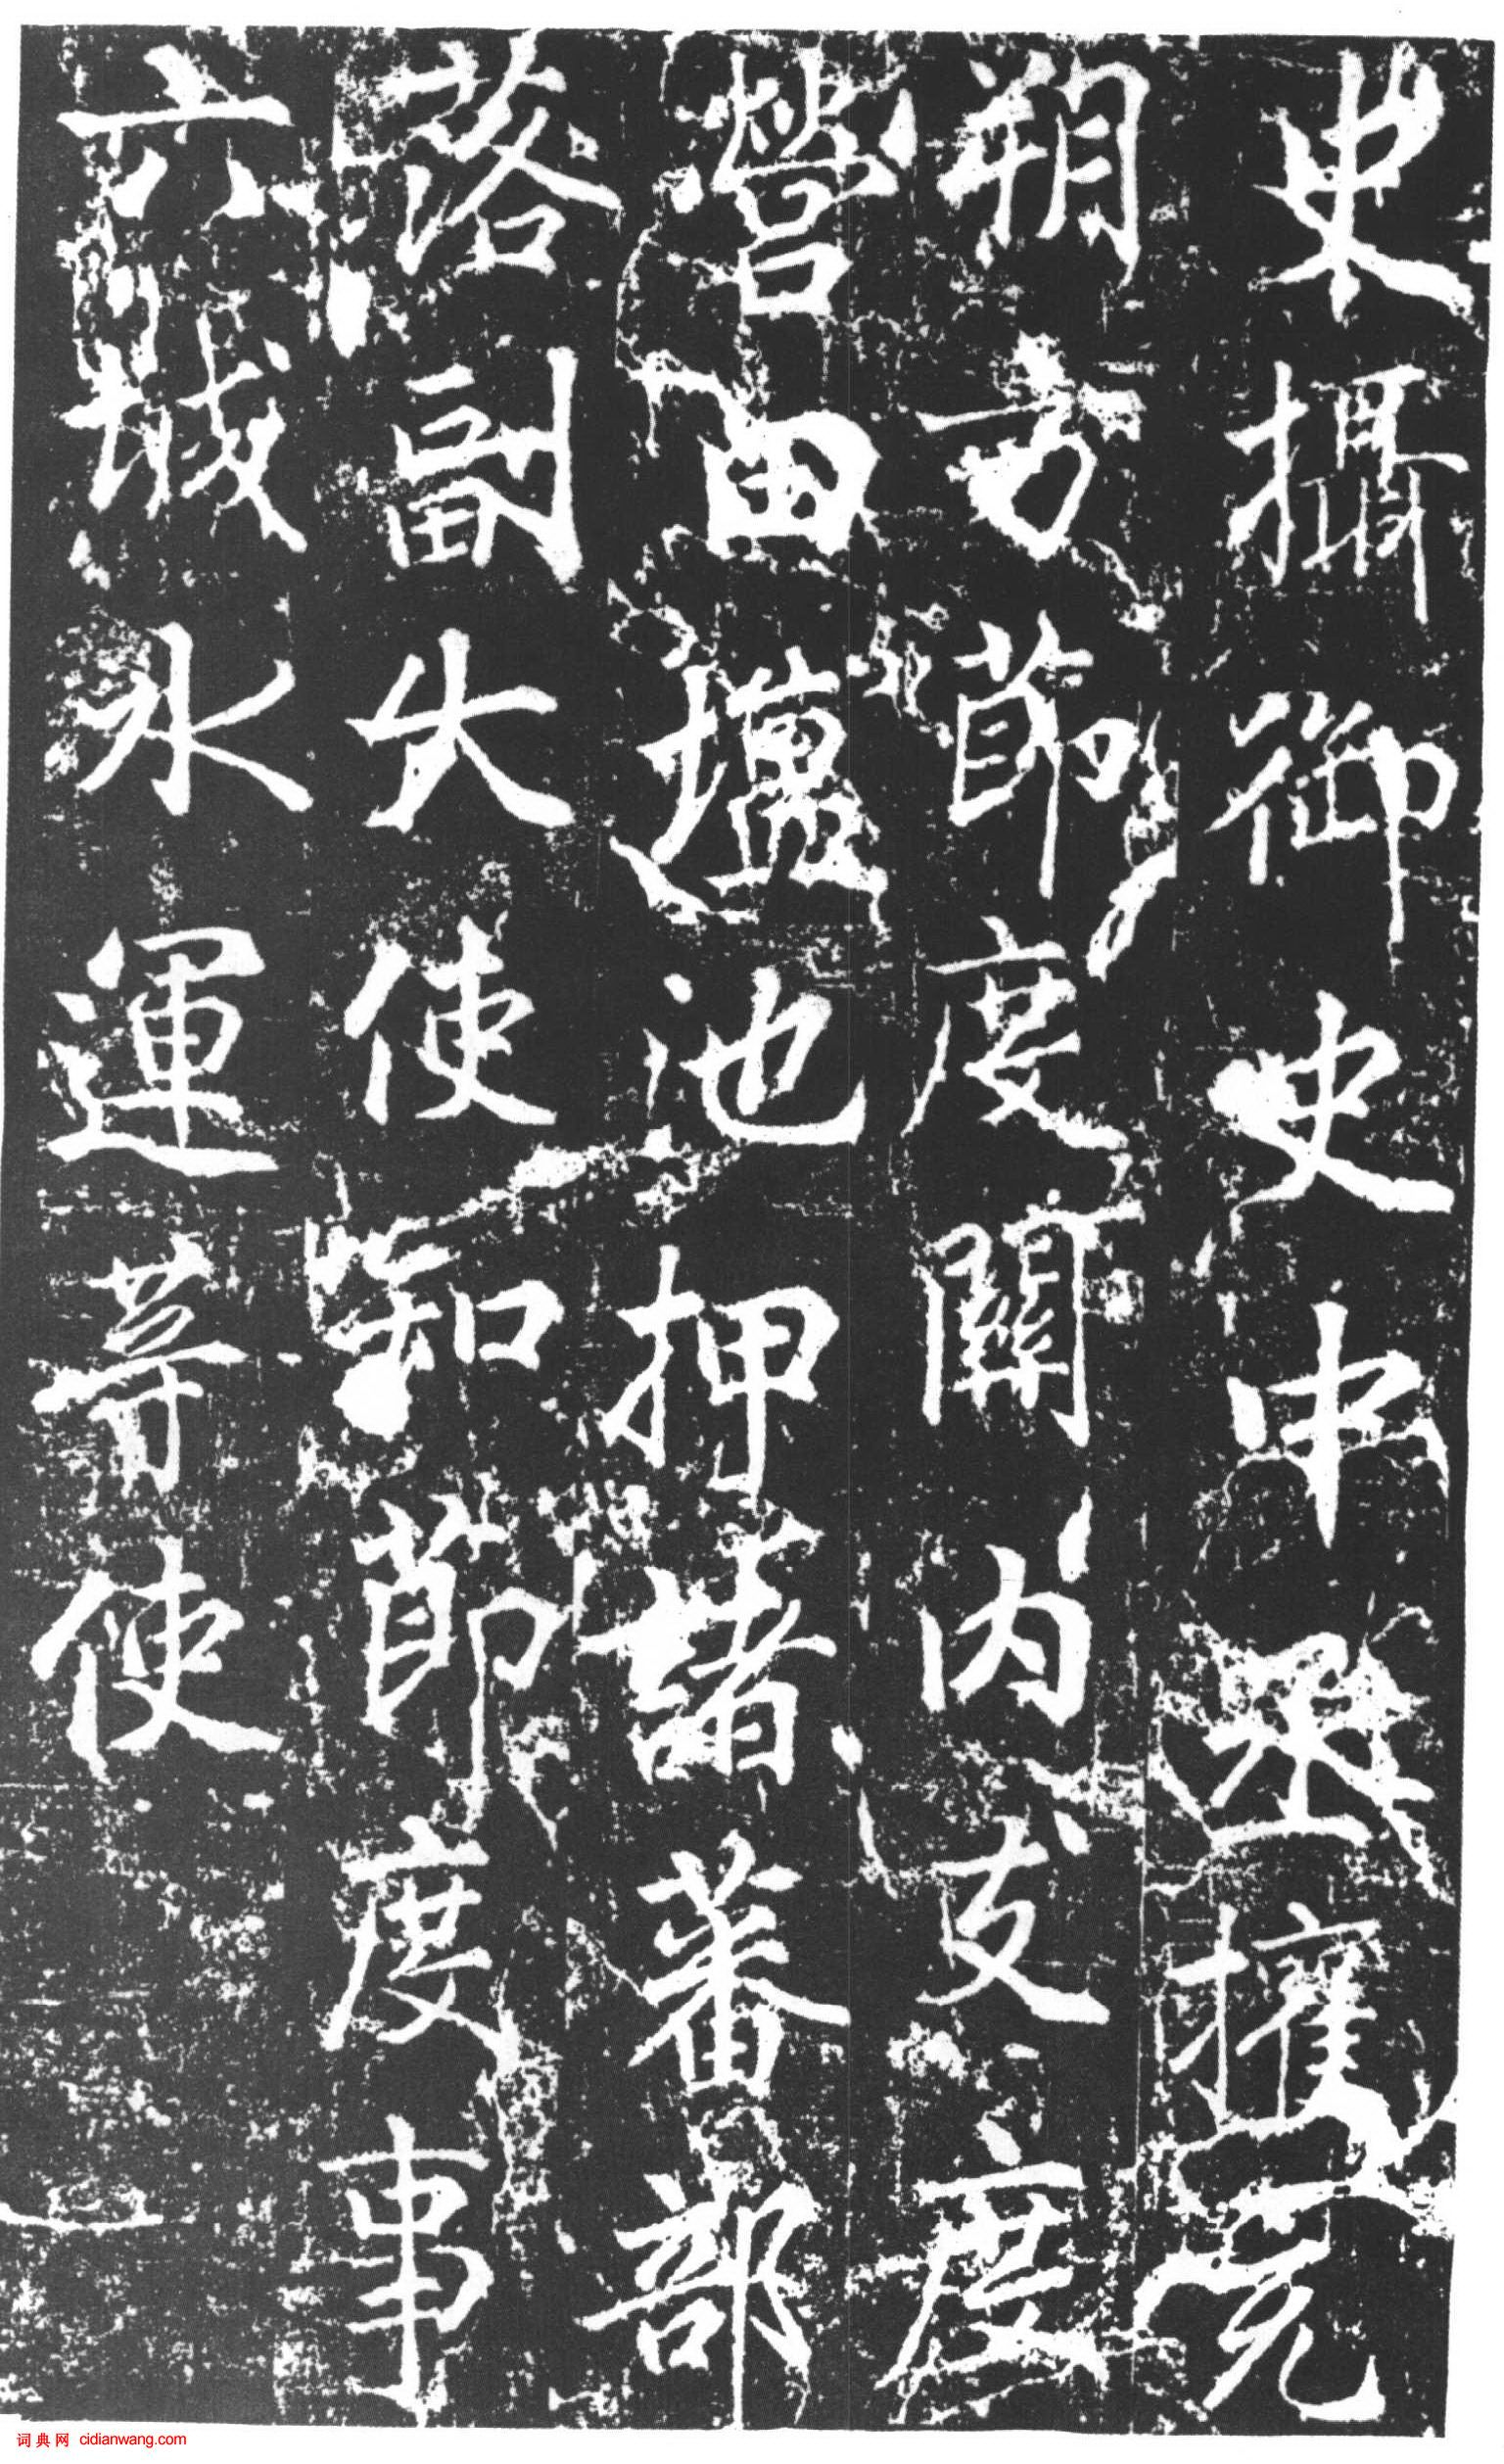 史攝御史中丞攉充
朔方節度關内支度
營田塩池押諸蕃部
落副大使知節度事
六城水運等使
词典网 cidianwang.com